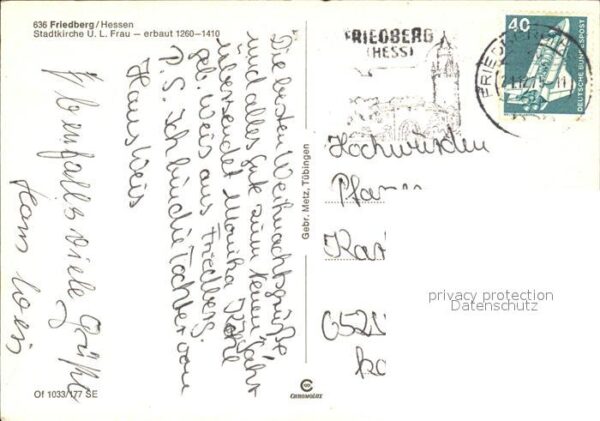 636 Friedberg/Hessen
Stadtkirche U. L. Frau – erbaut 1260–1410
Die besten Weihnachtsgrüße
und alles Gute zum neuen Jahr
übersendet Monika
geb. Weis aus Friedberg.
P.S. Ich bin die Tochter von
Hans Weis
Ebenfalls viele Grüße
Hans Weis
Of 1033/177 SE
Gebr. Metz, Tübingen
CHROMOLUX
FRIEDBERG
(HESS)
40
DEUTSCHE BUNDESPOST
Hochwürden
Pfar
Kar
652
privacy protection
Datenschutz